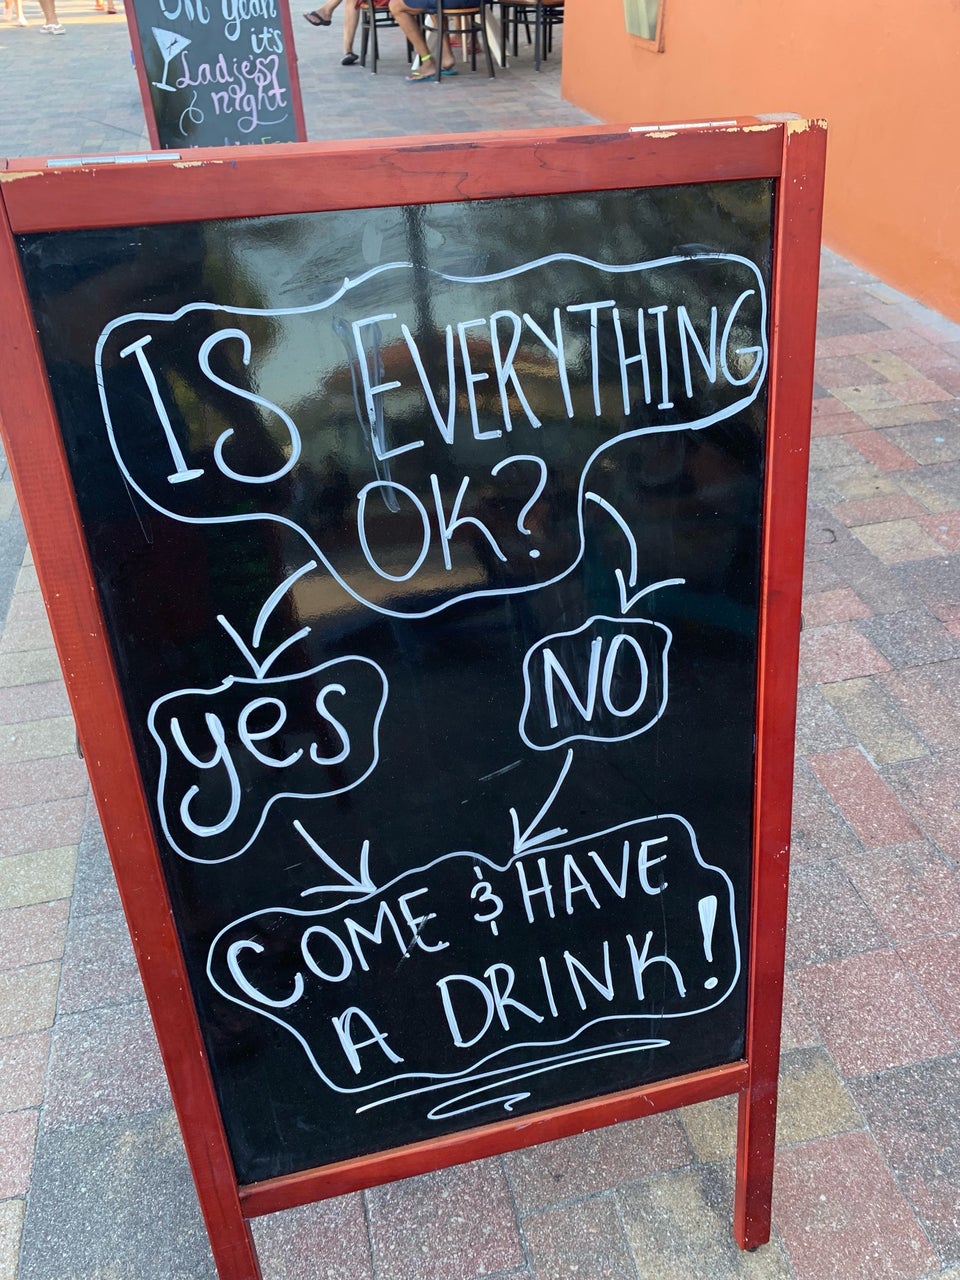 Oh yeah
it's
Ladies
night
IS EVERYTHING
OK?
yes
NO
COME & HAVE
A DRINK!